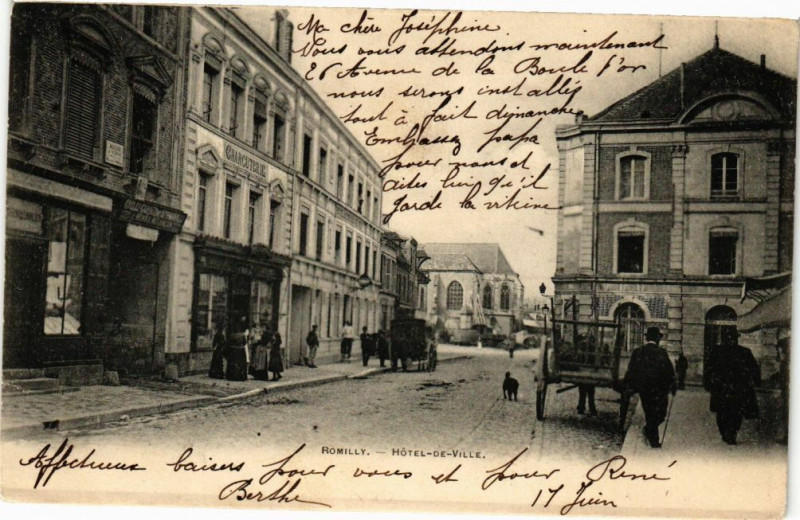 Ma chère Joséphine
Vous vous attendons maintenant
26 Avenue de la Boule d'or
nous serons installés
tout à fait dimanche
Embrassez papa
pour nous et
dites lui qu'il
garde la vitrine
CHARCUTERIE
ROMILLY. — HÔTEL-DE-VILLE.
Affectueux baisers pour vous et pour René
Berthe 17 Juin